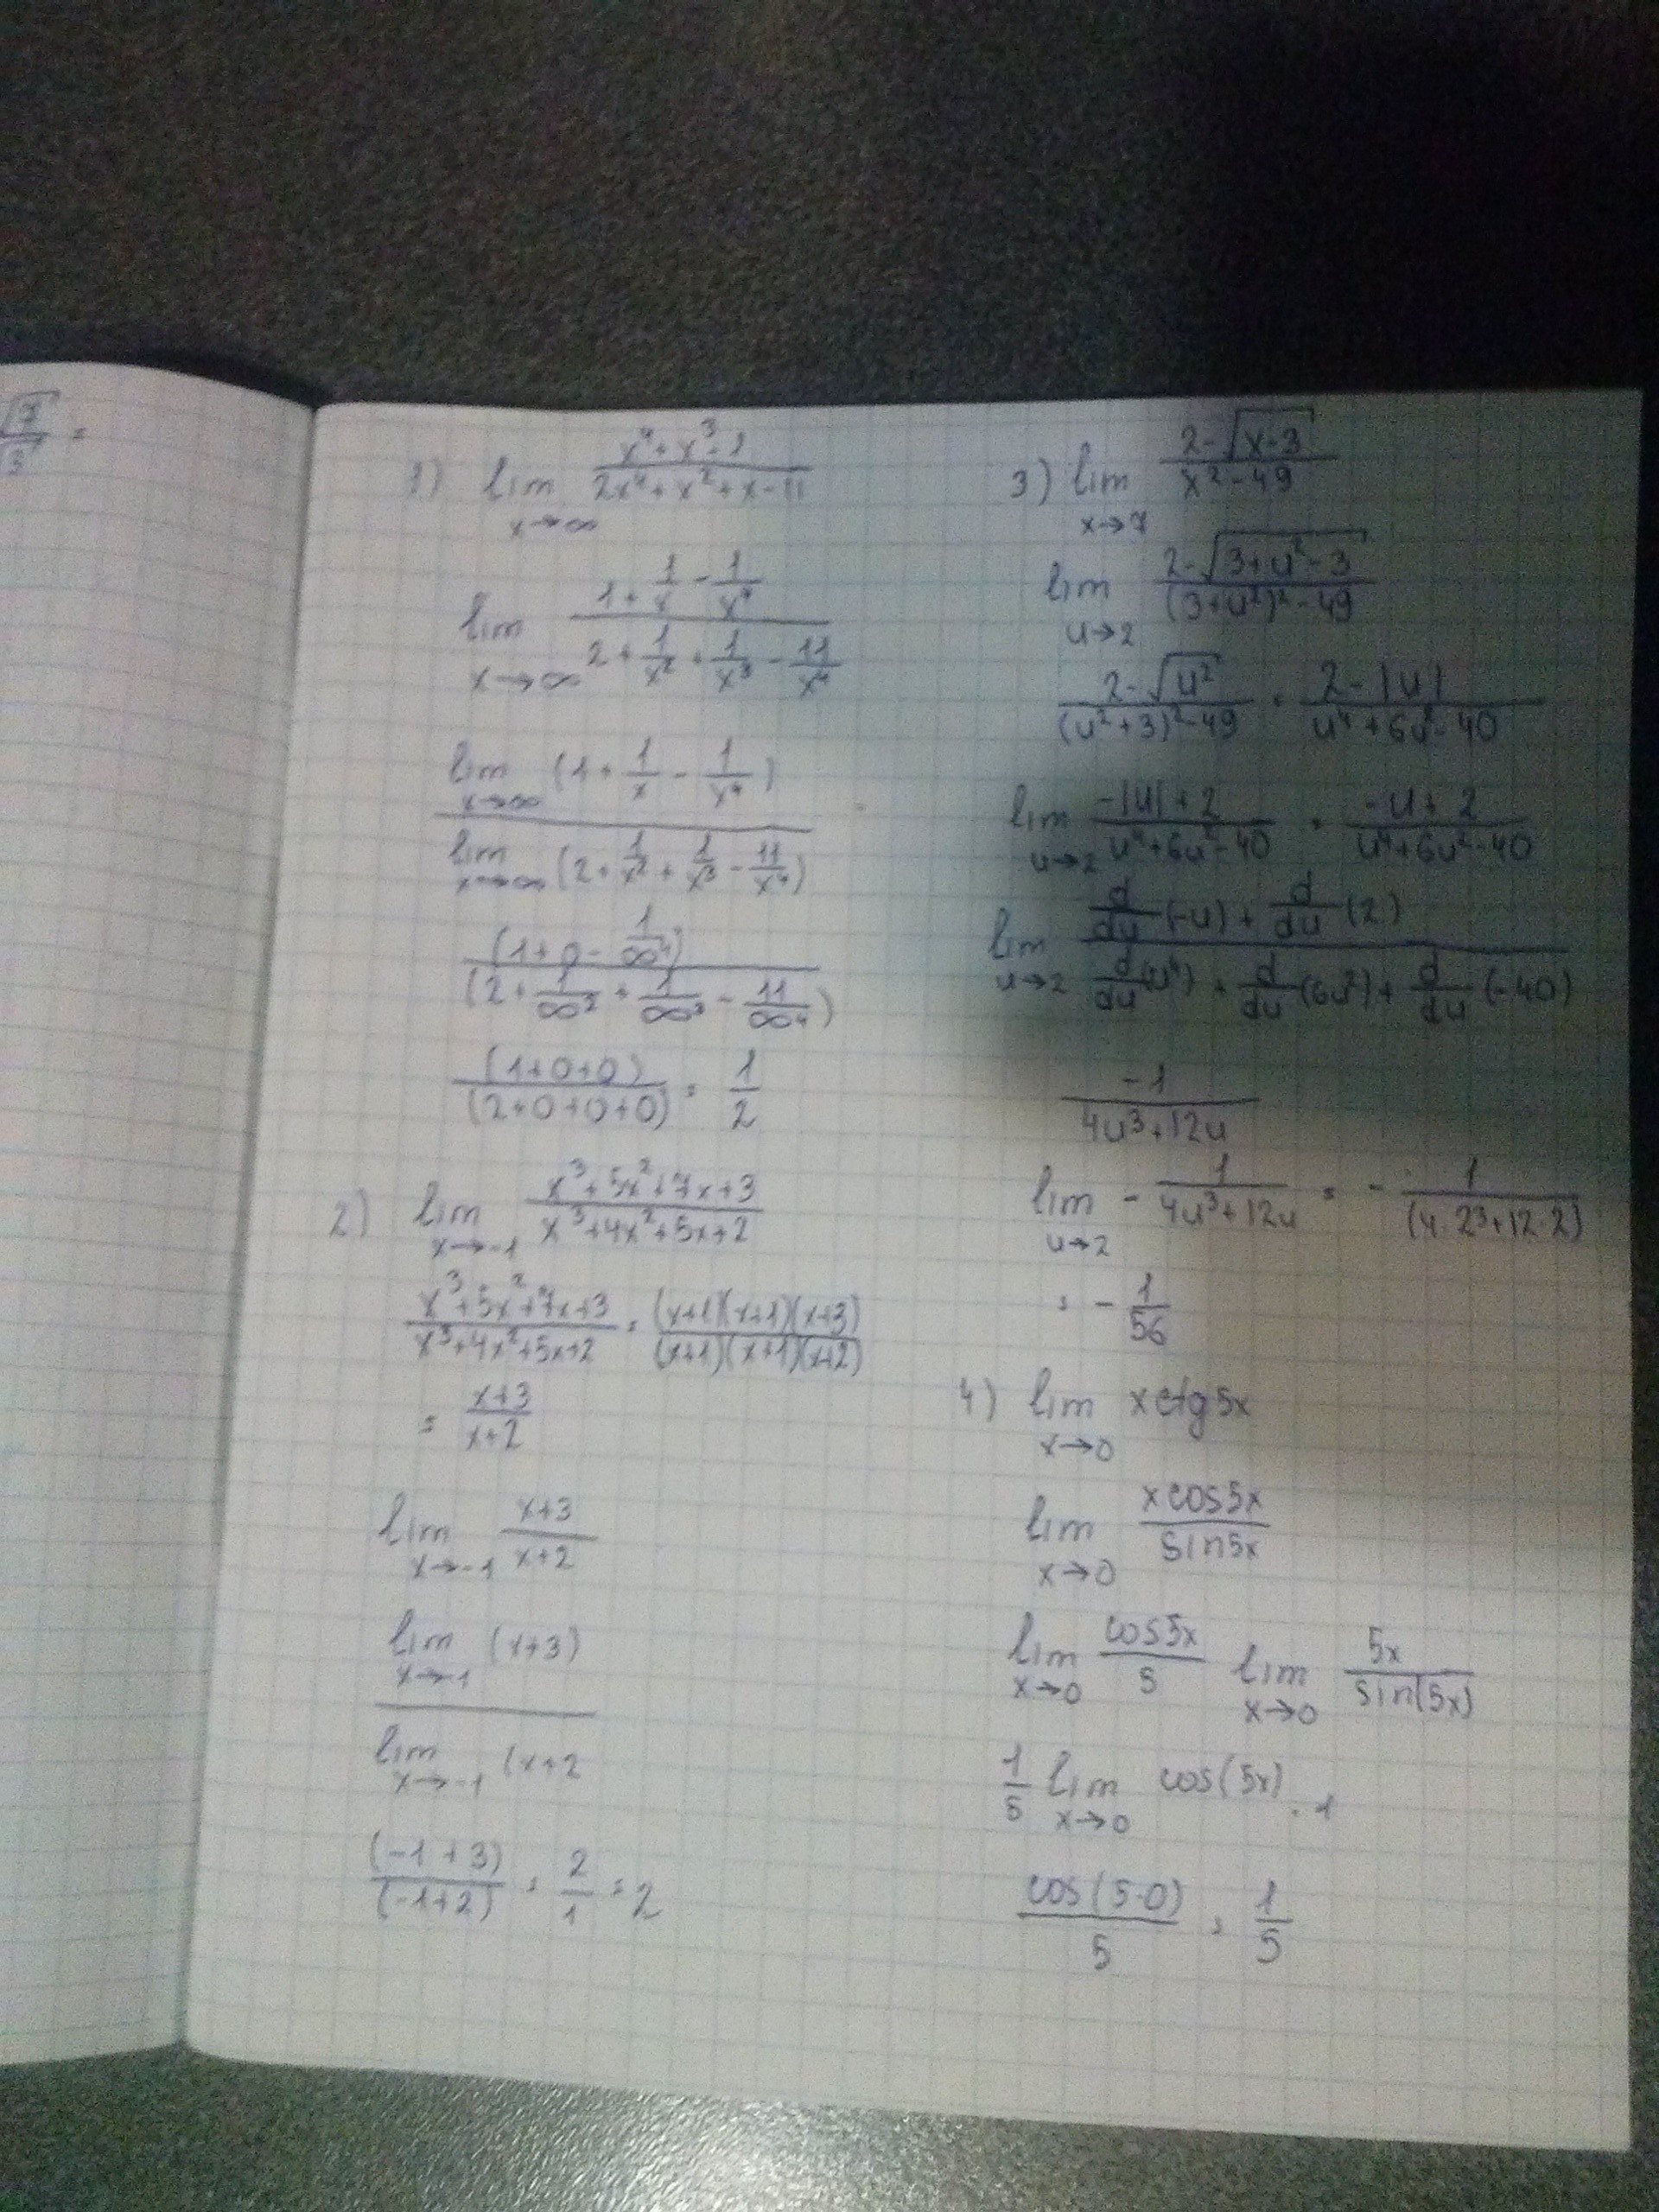 √7/√3 =
1) lim x→∞ (x⁴+x³-1)/(2x⁴+x²+x-11)
lim x→∞ (1+1/x-1/x⁴)/(2+1/x²+1/x³-11/x⁴)
lim x→∞ (1+1/x-1/x⁴)
lim x→∞ (2+1/x²+1/x³-11/x⁴)
(1+0-1/∞⁴)/(2+1/∞²+1/∞³-11/∞⁴)
(1+0+0)/(2+0+0+0) = 1/2
2) lim x→-1 (x³+5x²+7x+3)/(x³+4x²+5x+2)
(x³+5x²+7x+3)/(x³+4x²+5x+2) = (x+1)(x+1)(x+3)/(x+1)(x+1)(x+2)
= (x+3)/(x+2)
lim x→-1 (x+3)/(x+2)
lim x→-1 (x+3)
lim x→-1 (x+2
(-1+3)/(-1+2) = 2/1 = 2
3) lim x→7 (2-√(x-3))/(x²-49)
lim u→2 (2-√(3+u²-3))/((3+u²)²-49)
(2-√(u²))/((u²+3)²-49) = (2-|u|)/(u⁴+6u²-40)
lim u→2 (-|u|+2)/(u⁴+6u²-40) = (-u+2)/(u⁴+6u²-40)
lim u→2 (d/du(-u)+d/du(2))/(d/du(u⁴)+d/du(6u²)+d/du(-40))
-1/(4u³+12u)
lim u→2 -1/(4u³+12u) = -1/(4·2³+12·2)
= -1/56
4) lim x→0 xctg5x
lim x→0 xcos5x/sin5x
lim x→0 cos5x/5 lim x→0 5x/sin(5x)
1/5 lim x→0 cos(5x) · 1
cos(5·0)/5 = 1/5